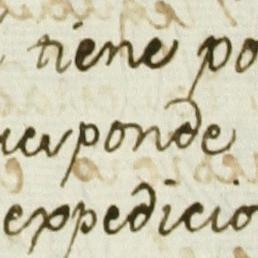 tiene po
ponde
expedicio